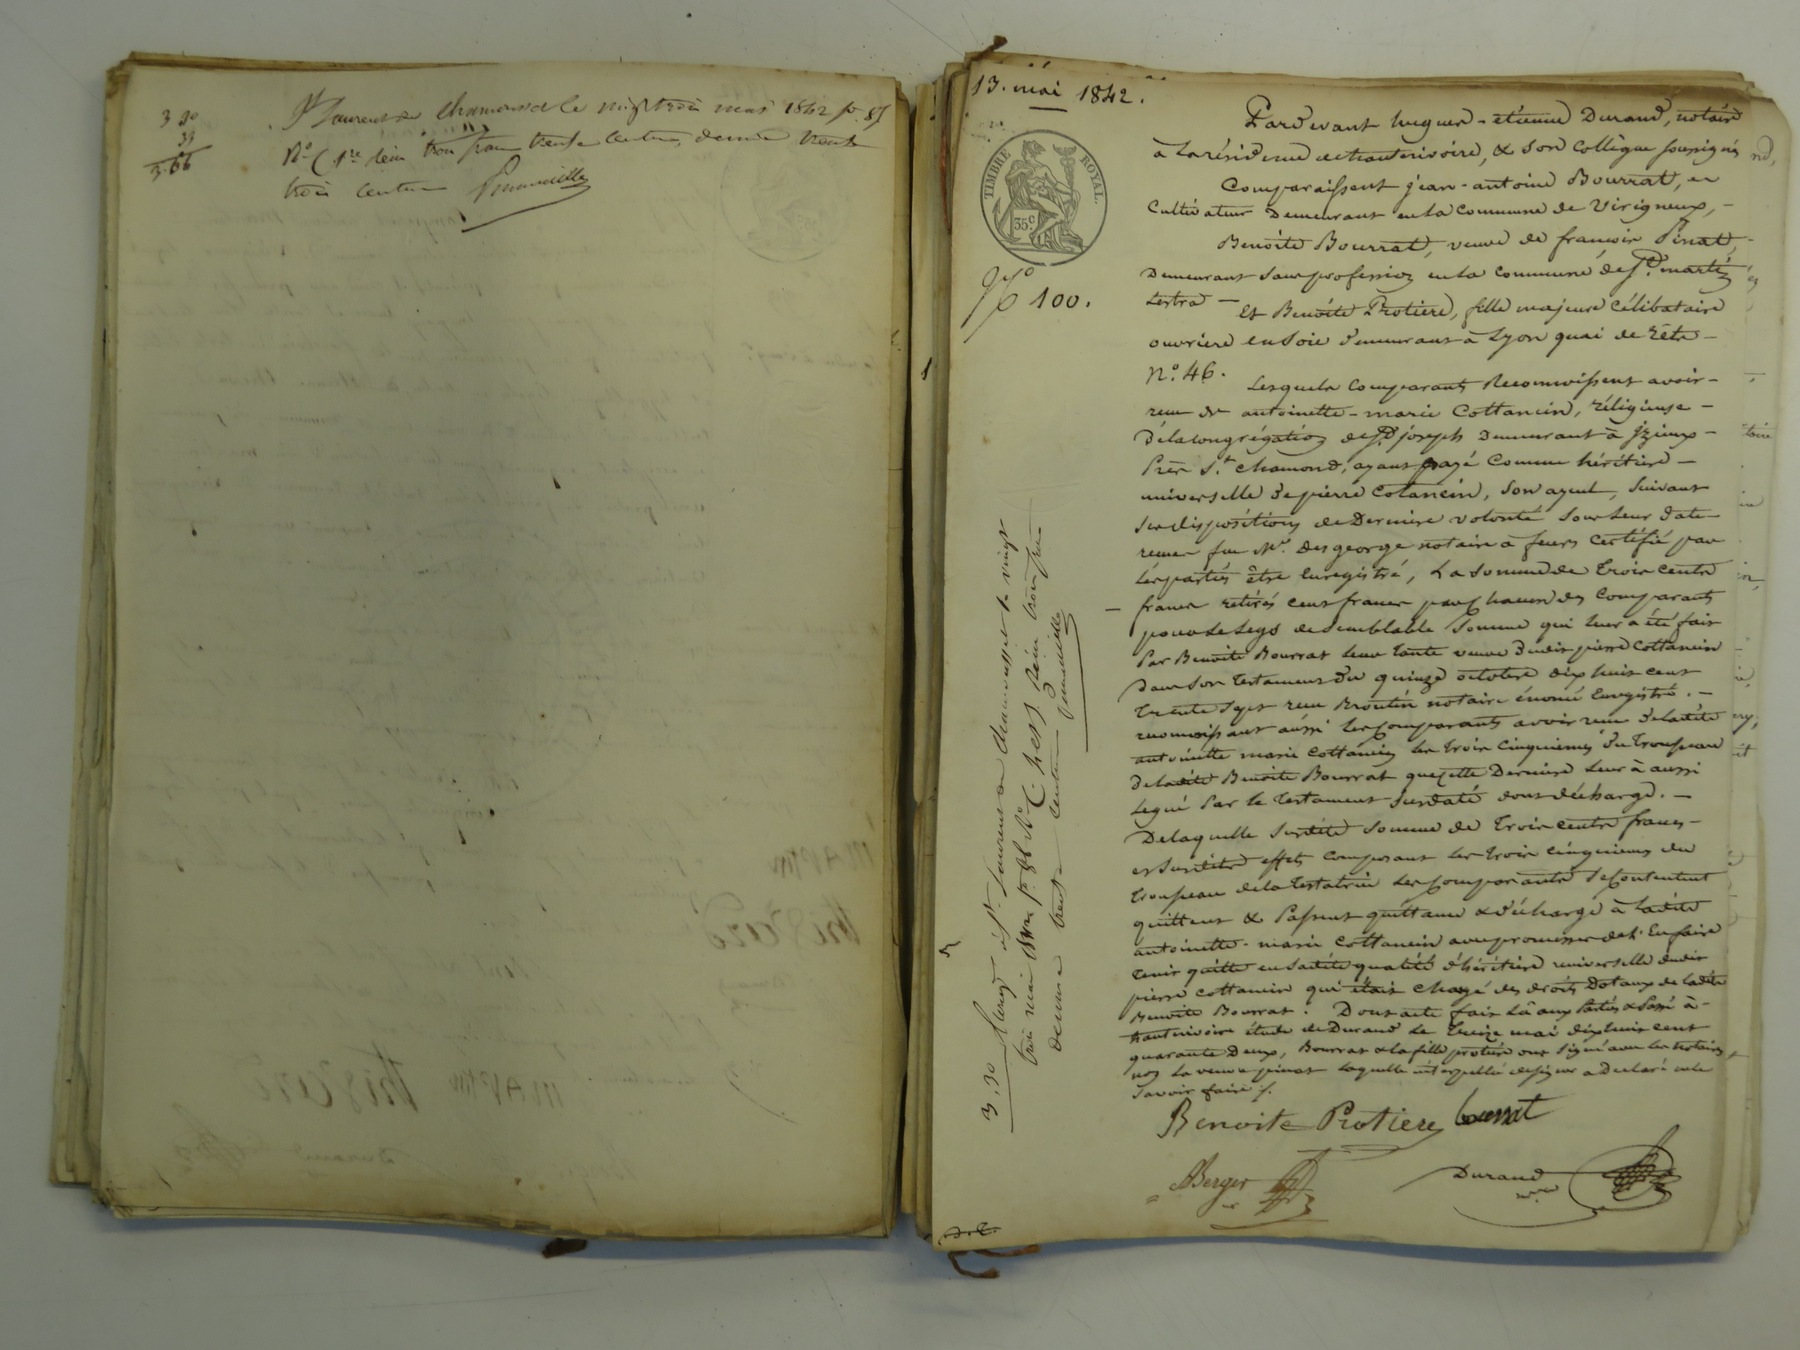 3 30
33
3.66
St Laurent de Chamousset le vingt trois mai 1842 fo 87
Ro C 1re reçu trois francs trente centimes décime trente
trois centimes
13. mai 1842.
TIMBRE ROYAL.
35c.
No 100.
Pardevant hugues-etienne Durand, notaire
à la résidence de hauterivoire, & son Collègue soussignés
Comparaissent jean-antoine Bourrat,
Cultivateur Demeurant en la Commune de Virigneux,-
Benoite Bourrat, veuve de françois Pinat,-
Demeurant sans profession en la Commune de St. martin
Lestra —
Et Benoite Protiere, fille majeure Célibataire
ouvriere en Soie demeurant à Lyon quai de Retz-
No. 46.
Lesquels Comparants Reconnaissent avoir-
reçu de antoinette-marie Cottancin, réligieuse-
de la congrégation de St. joseph Demeurant à jzieux-
Près St. Chamond, ayant payé Comme héritière-
universelle de pierre Cotancin, son ayeul, Suivant
ses dispositions de Dernière volonté sous leur date
reçues par Me. Desgeorge notaire à feurs Certifié par
les parties être Enregistré, La Somme de trois cents
francs cent francs pour chacun des Comparants
pour le Legs de Semblable Somme qui leur a été fait
Par Benoite Bourrat leur tante veuve dudit pierre Cottancin
dans son testament du quinze octobre dix huit cent
trente sept reçu notaire énoncé Enregistré.-
reconnaissant aussi les Comparants avoir reçu de ladite
antoinette marie Cottancin les trois Cinquiemes du trousseau
de ladite Benoite Bourrat que cette Derniere leur à aussi
Legué Par le testament Susdaté dont décharge.-
De laquelle Susdite Somme de trois cents francs-
et Susdits effets Composant les trois cinquiemes du
trousseau de la testatrice les Comparants se Contentent
quittent & Passent quittance & décharge à ladite
antoinette-marie Cottancin avec promesse de l'En faire
tenir quitte en sadite qualité d'héritière universelle dudit
pierre Cottancin qui était chargé des droits Dotaux de ladite
Benoite Bourrat. Dont acte fait Lû aux Parties & Passé à-
hauterivoire étude de Durand Le treize mai dix huit cent
quarante Deux, Bourrat & la fille protiere ont Signé avec les notaires
non La veuve pinat laquelle interpellée de signer a Déclaré ne le
Savoir faire /.
Benoite Protiere Bourrat
Berger
Durand
3,30 Enregé à St. Laurent de chamousset le vingt
trois mai 1842 fo 86 Ro C. 4 et 5 Reçu trois francs
trente centimes
décime trente